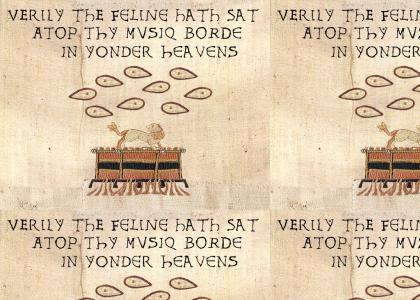 VERILY THE FELINE HATH SAT
ATOP THY MVSIQ BORDE
IN YONDER HEAVENS
VERILY THE FELIN
ATOP THY MV
IN YONDER
VERILY THE FELINE HATH SAT
ATOP THY MVSIQ BORDE
IN YONDER HEAVENS
VERILY THE FELIN
ATOP THY MV
IN YONDER